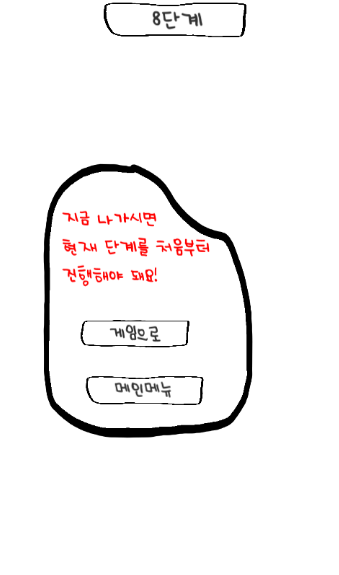 8단계
지금 나가시면
현재 단계를 처음부터
진행해야 돼요!
게임으로
메인메뉴